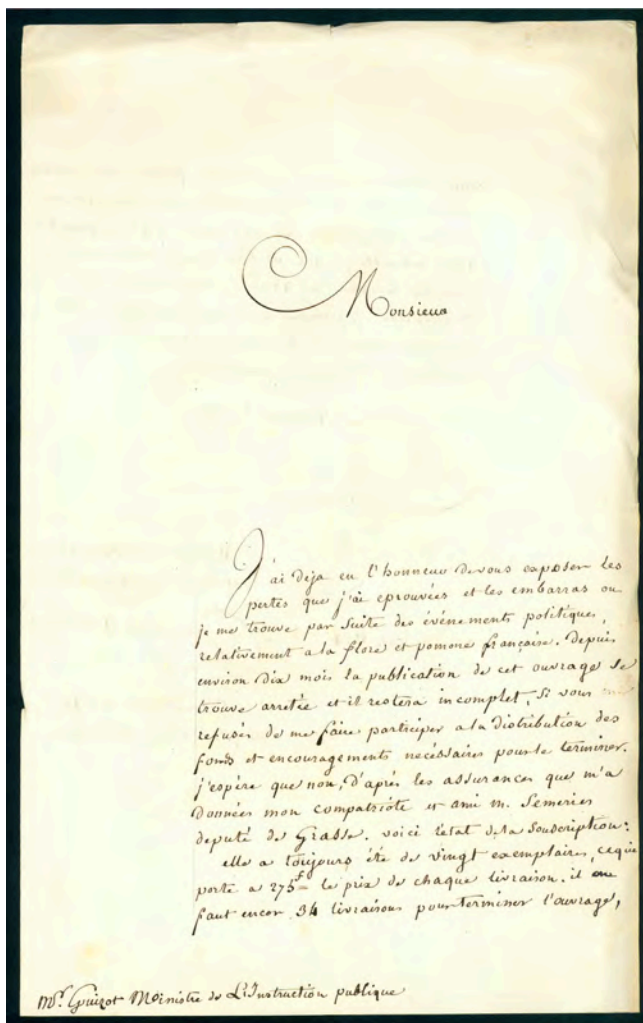 Monsieur
J'ai deja eu l'honneur de vous exposer les
pertes que j'ai eprouvées et les embarras ou
je me trouve par suite des événements politiques,
relativement a la flore et pomone française. Depuis
environ dix mois la publication de cet ouvrage se
trouve arretée et il restera incomplet, si vous
refusés de me faire participer a la distribution des
fonds et encouragements necéssaires pour le terminer.
j'espère que non, d'aprés les assurances que m'a
données mon compatriote et ami m. Semeries
deputé de Grasse. voici l'etat de la souscription:
elle a toujours été de vingt exemplaires, ce qui
porte a 275f= le prix de chaque livraison. il me
faut encor 34 livraisons pour terminer l'ouvrage,
Mr. Guizot Ministre de L'Instruction publique